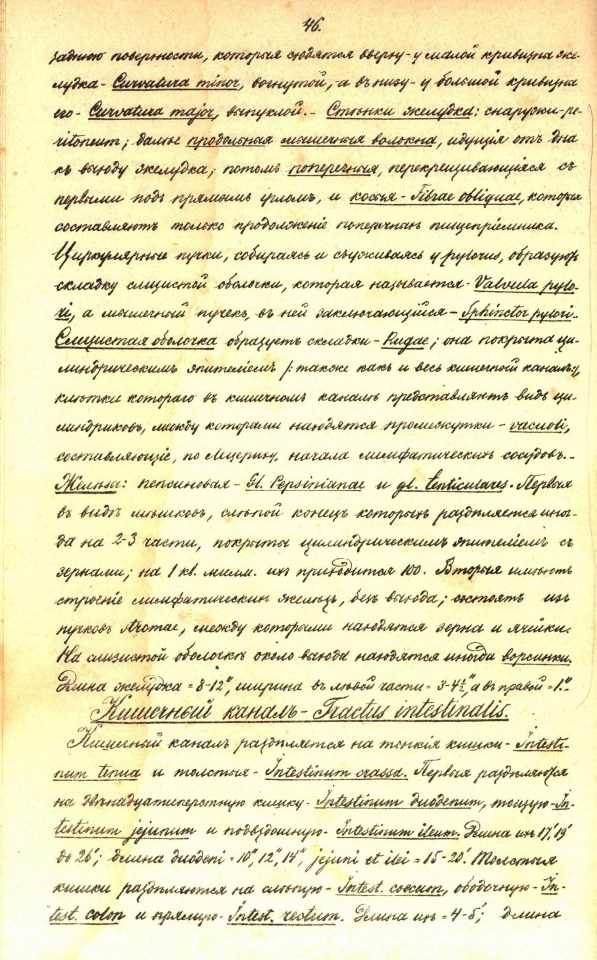 46.
заднюю поверхности, которыя сходятся вверху - у малой кривизны же-
лудка - Curvatura minor, вогнутой, а въ низу - у большой кривизны
его - Curvatura major, выпуклой. - Стѣнки желудка: снаружи - pe-
ritoneum; далѣе продольныя мышечныя волокна, идущія отъ дна
къ выходу желудка; потомъ поперечныя, перекрещивающіяся съ
первыми подъ прямымъ угломъ, и косыя - Fibrae obliquae, которыя
составляютъ только продолженіе поперечныхъ пищепріемника.
Циркулярные пучки, собираясь и съуживаясь у pylorus, образуютъ
складку слизистой оболочки, которая называется - Valvula pylo-
ri, а мышечный пучекъ, въ ней заключающійся - Sphinctor pylori. -
Слизистая оболочка образуетъ складки - Rugae; она покрыта ци-
линдрическимъ эпителіемъ /: также какъ и весь кишечный каналъ:/,
клѣтки котораго въ кишечномъ каналѣ представляютъ видъ ци-
линдриковъ, между которыми находятся промежутки - vacuoli,
составляющіе, по Лецериху, начала лимфатическихъ сосудовъ. -
Железы: пепсиновыя - Gl. Pepsinianae и gl. lenticulares. Первыя
въ видѣ мѣшковъ, слѣпой конецъ которыхъ раздѣляется ино-
гда на 2-3 части, покрыты цилиндрическимъ эпителіемъ съ
зернами; на 1 кв. милим. ихъ приходится 100. Вторыя имѣютъ
строеніе лимфатическихъ железъ, безъ выхода; состоятъ изъ
пучковъ, между которыми находятся зерна и ячейки.
На слизистой оболочкѣ около выхода находятся иногда ворсинки.
Длина желудка = 8-12", ширина въ лѣвой части = 3-4½", а въ правой = 1".
Кишечный каналъ - Tractus intestinalis.
Кишечный каналъ раздѣляется на тонкія кишки - Intesti-
num tenua и толстыя - Intestinum crassa. Первыя раздѣляются
на двѣнадцатиперстную кишку - Intestinum duodenum, тощую - In-
testinum jejunum и подвздошную - Intestinum ileum. Длина ихъ 17', 19'
до 26'; длина duodeni = 10", 12", 14", jejuni et ilei = 15-20'. Толстыя
кишки раздѣляются на слѣпую - Intest. coecum, ободочную - In-
test. colon и прямую - Intest. rectum. Длина ихъ = 4-5'; длина